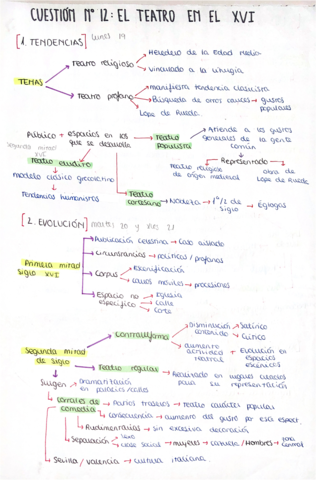 CUESTIÓN Nº 12: EL TEATRO EN EL XVI
[1. TENDENCIAS] lunes 19
TEMAS
Teatro religioso
Heredero de la Edad Media
Vinculado a la liturgia
Teatro profano
manifiesta tendencia clasicista
Búsqueda de otros cauces → gustos populares
Lope de Rueda
Público + espacios en los que se desarrolla
Segunda mitad XVI
Teatro erudito
modelo clásico grecolatino
Tendencias humanistas
Teatro populista
Atiende a los gustos generales de la gente común
Representado
Teatro religioso de origen medieval
obra de Lope de Rueda
Teatro cortesano → Nobleza → 1ª/2 de siglo → Églogas
[2. EVOLUCIÓN] martes 20 y mié 21
Primera mitad siglo XVI
Publicación celestina → Caso aislado
Circunstancias → políticas / profanas
Corpus
Escenificación
carros móviles → procesiones
Espacio no específico
Iglesia
Calle
Corte
Segunda mitad de siglo
Contrarreforma
Disminución contenido
Satírico
Crítico
aumento actividad teatral
Evolución en espacios escénicos
Teatro regular → Realizado en lugares creados para su representación
Surgen → dramatización en pórticos/calles
corrales de comedia → patios traseros → teatro carácter popular
consecuencia → aumento del gusto por este espect.
Rudimentarios → sin excesiva decoración
Separación
sexo
clase social → mujeres → cazuela / Hombres → patio central
Sevilla / Valencia → cultura italiana